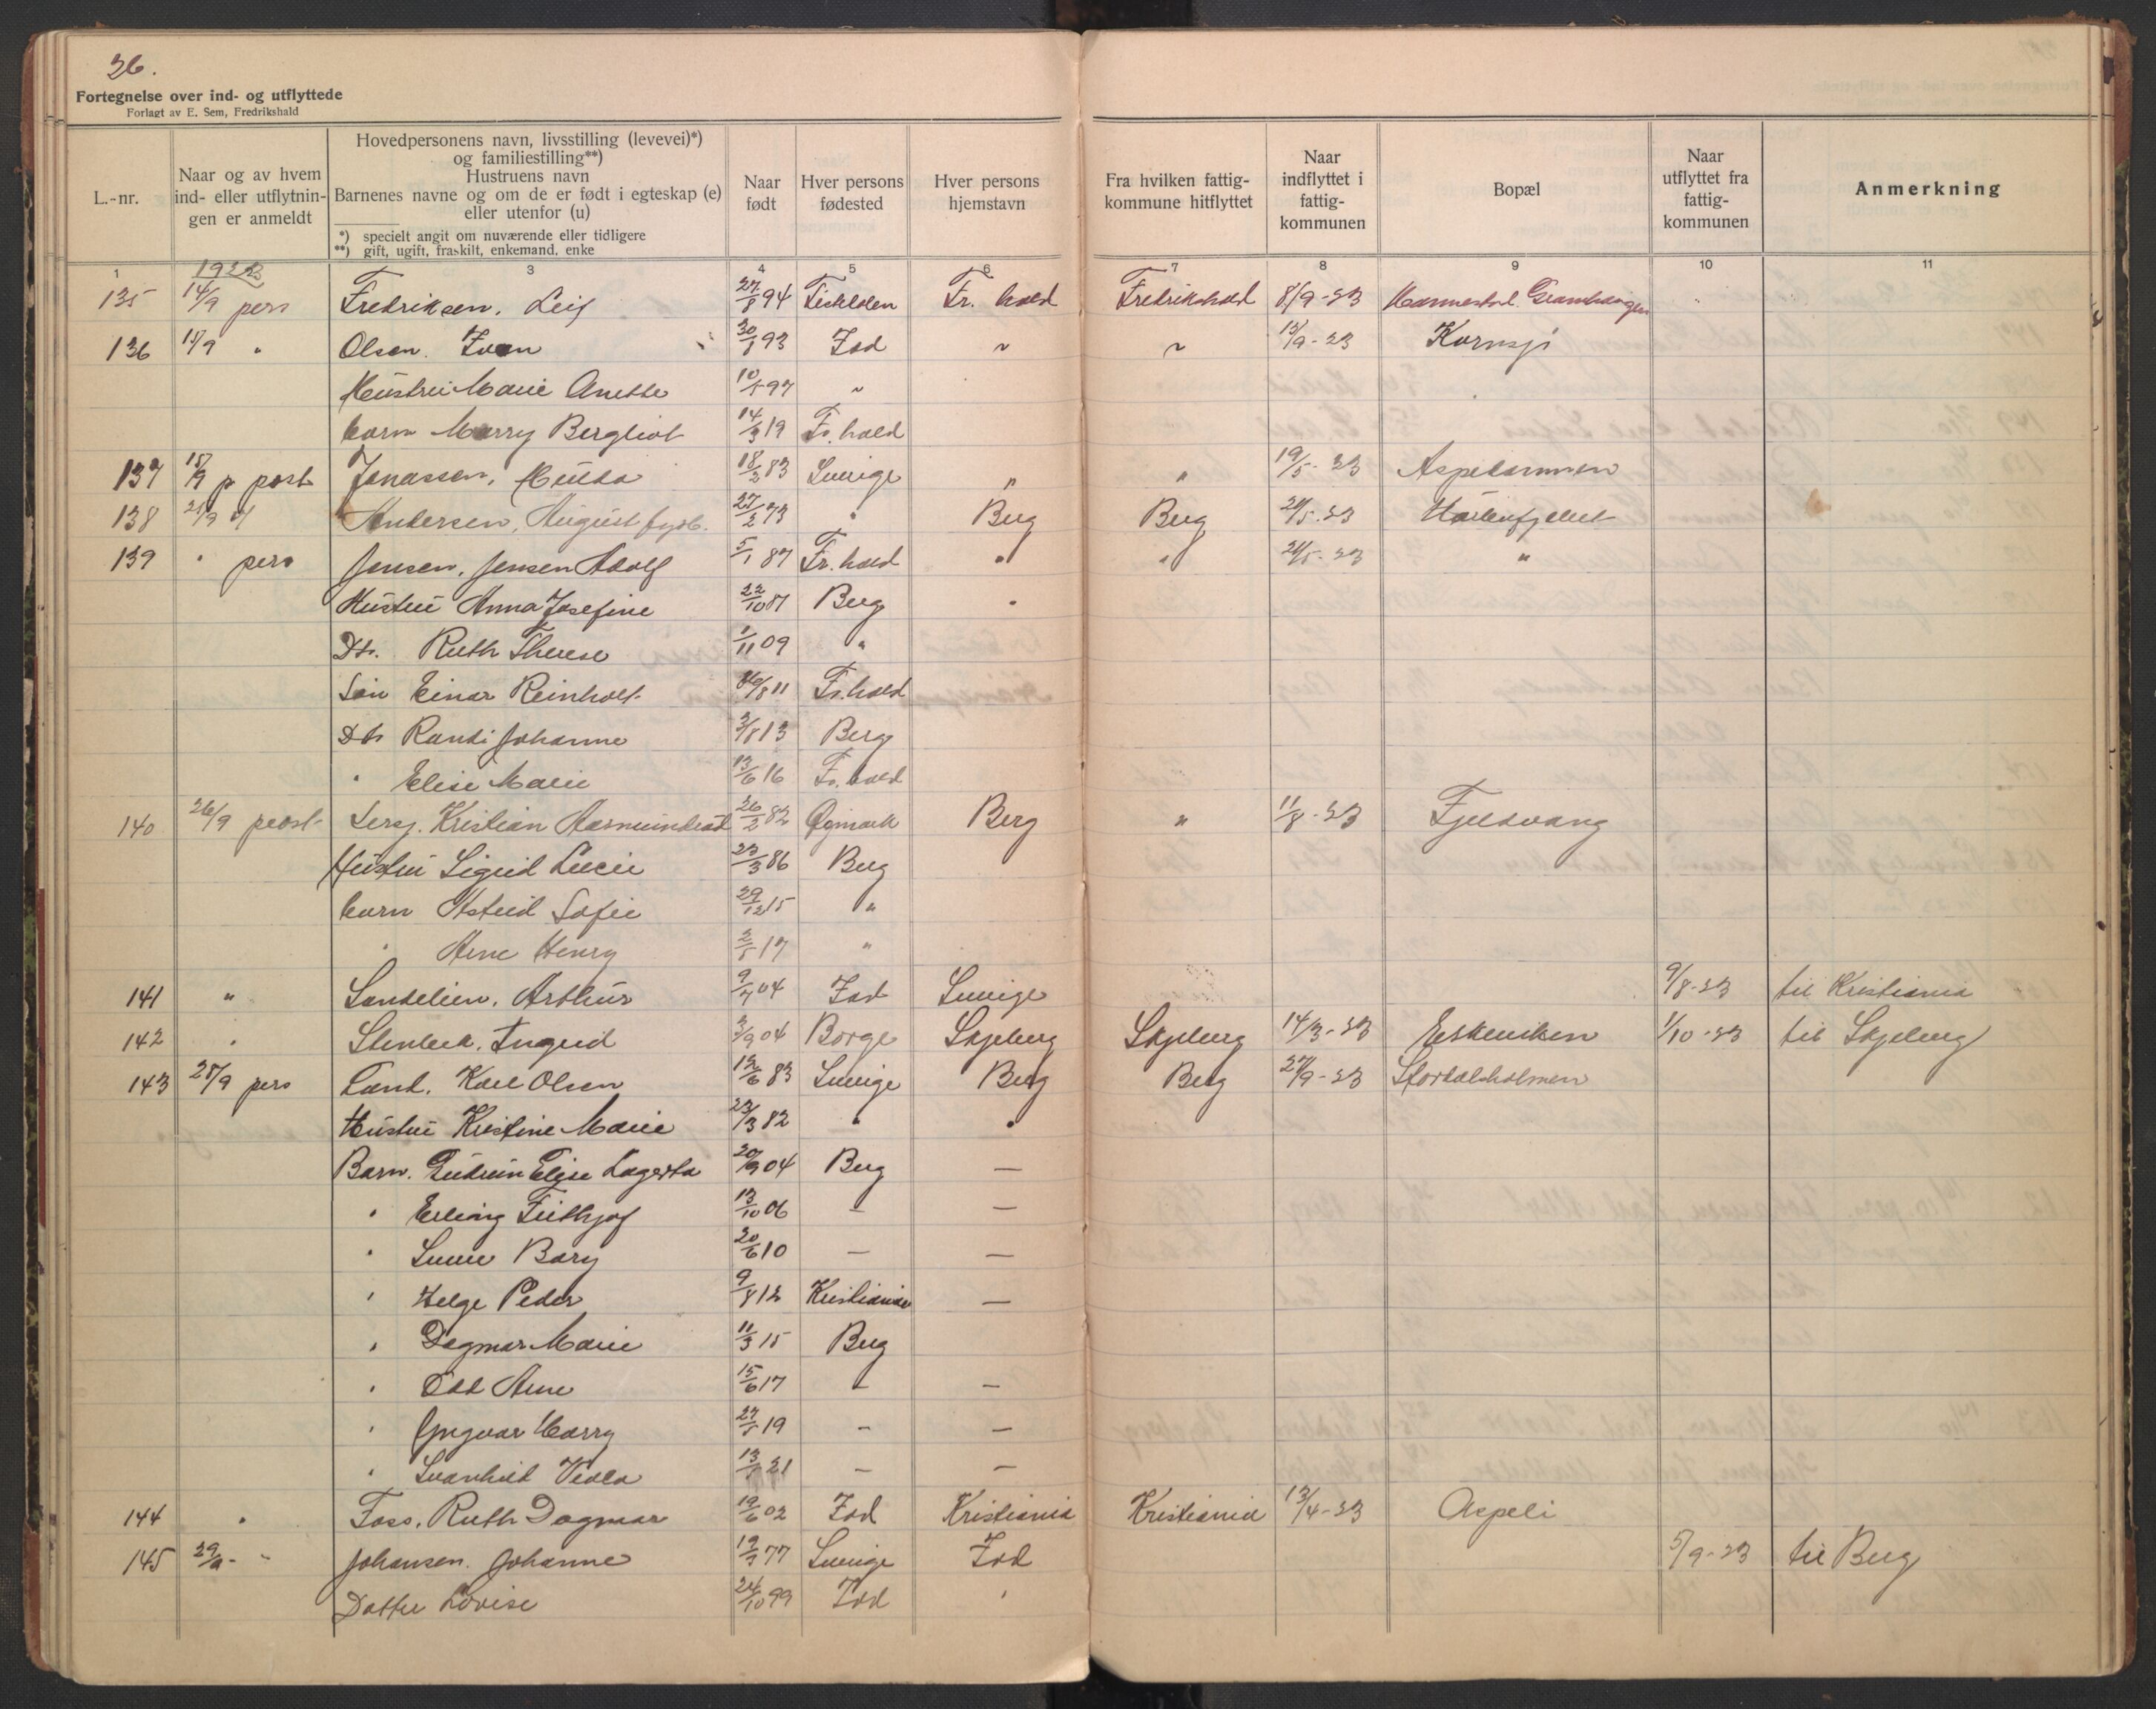 36.
Fortegnelse over ind- og utflyttede
Forlagt av E. Sem, Fredrikshald
L.-nr.
Naar og av hvem ind- eller utflytnin-gen er anmeldt
Hovedpersonens navn, livsstilling (levevei)*)
og familiestilling**)
Hustruens navn
Barnenes navne og om de er født i egteskap (e)
eller utenfor (u)
*) specielt angit om nuværende eller tidligere
**) gift, ugift, fraskilt, enkemand, enke
Naar født
Hver persons fødested
Hver persons hjemstavn
Fra hvilken fattig-kommune hitflyttet
Naar indflyttet i fattig-kommunen
Bopæl
Naar utflyttet fra fattig-kommunen
Anmerkning
1 3 4 5 6 7 8 9 10 11
1923
135 14/9 pers Fredriksen, Leif 27/8 94 Fr. hald Fredrikshald 8/9-23
136 15/9 " Olsen. Ivan 30/1 93 Idd " " 15/9-23 Kornsjø
Hustru Marie Anette 10/5 97 "
barn Marry Bergliot 14/3 19 Fr. hald
137 18/9 p post Jonassen, Hulda 18/2 83 Sverige " " 19/5-23
138 21/9 " Andersen, August 27/2 73 " Berg Berg 24/5-23
139 " pers Jensen, Jensen Adolf 5/1 87 Fr. hald " " 24/5-23 "
Hustru Anna Josefine 22/10 87 Berg "
Dtr. Ruth Therese 1/11 09 "
Søn Einar Reinholt 8 11 Fr. hald
Dtr Randi Johanne 3/8 13 Berg
" Elise Marie 13/6 16 Fr. hald
140 26/9 post Sersj. Kristian Aasmundrød 26/2 82 Øymark Berg " 11/8-23 Fjeldvang
Hustru Sigrid Lucie 23/3 86 Berg
barn Astrid Sofie 29/12 15 "
" Arne Henry 2/5 17 "
141 " Sandelien, Arthur 9/7 04 Idd Sverige 9/8-23 til Kristiania
142 " Stenbeck, Ingrid 3/9 04 Borge Skjeberg Skjeberg 14/3-23 Eskeviken 1/10-23 til Skjeberg
143 28/9 pers Tand. Karl Olsen 12/6 83 Sverige Berg Berg 27/9-23
Hustru Kristine Marie 23/3 82 " "
Barn. Gudrun Elise Lagerta 20/9 04 Berg —
" Erling Frithjof 13/10 06 — —
" Borg 20/6 10 — —
" Helge Peder 9/8 12 Kristiania —
" Dagmar Marie 11/3 15 Berg
" Odd Arne 15/6 17 — —
" Yngvar Harry 27/5 19 — —
" Svanhild Viola 13/ 21 — —
144 " Foss, Ruth Dagmar 19/6 02 Idd Kristiania Kristiania 13/4-23 Aspeli
145 29/9 - " Johansen, Johanne 19/3 77 Sverige Idd 5/9-23 til Berg
Datter Lovise 24/10 99 Idd "